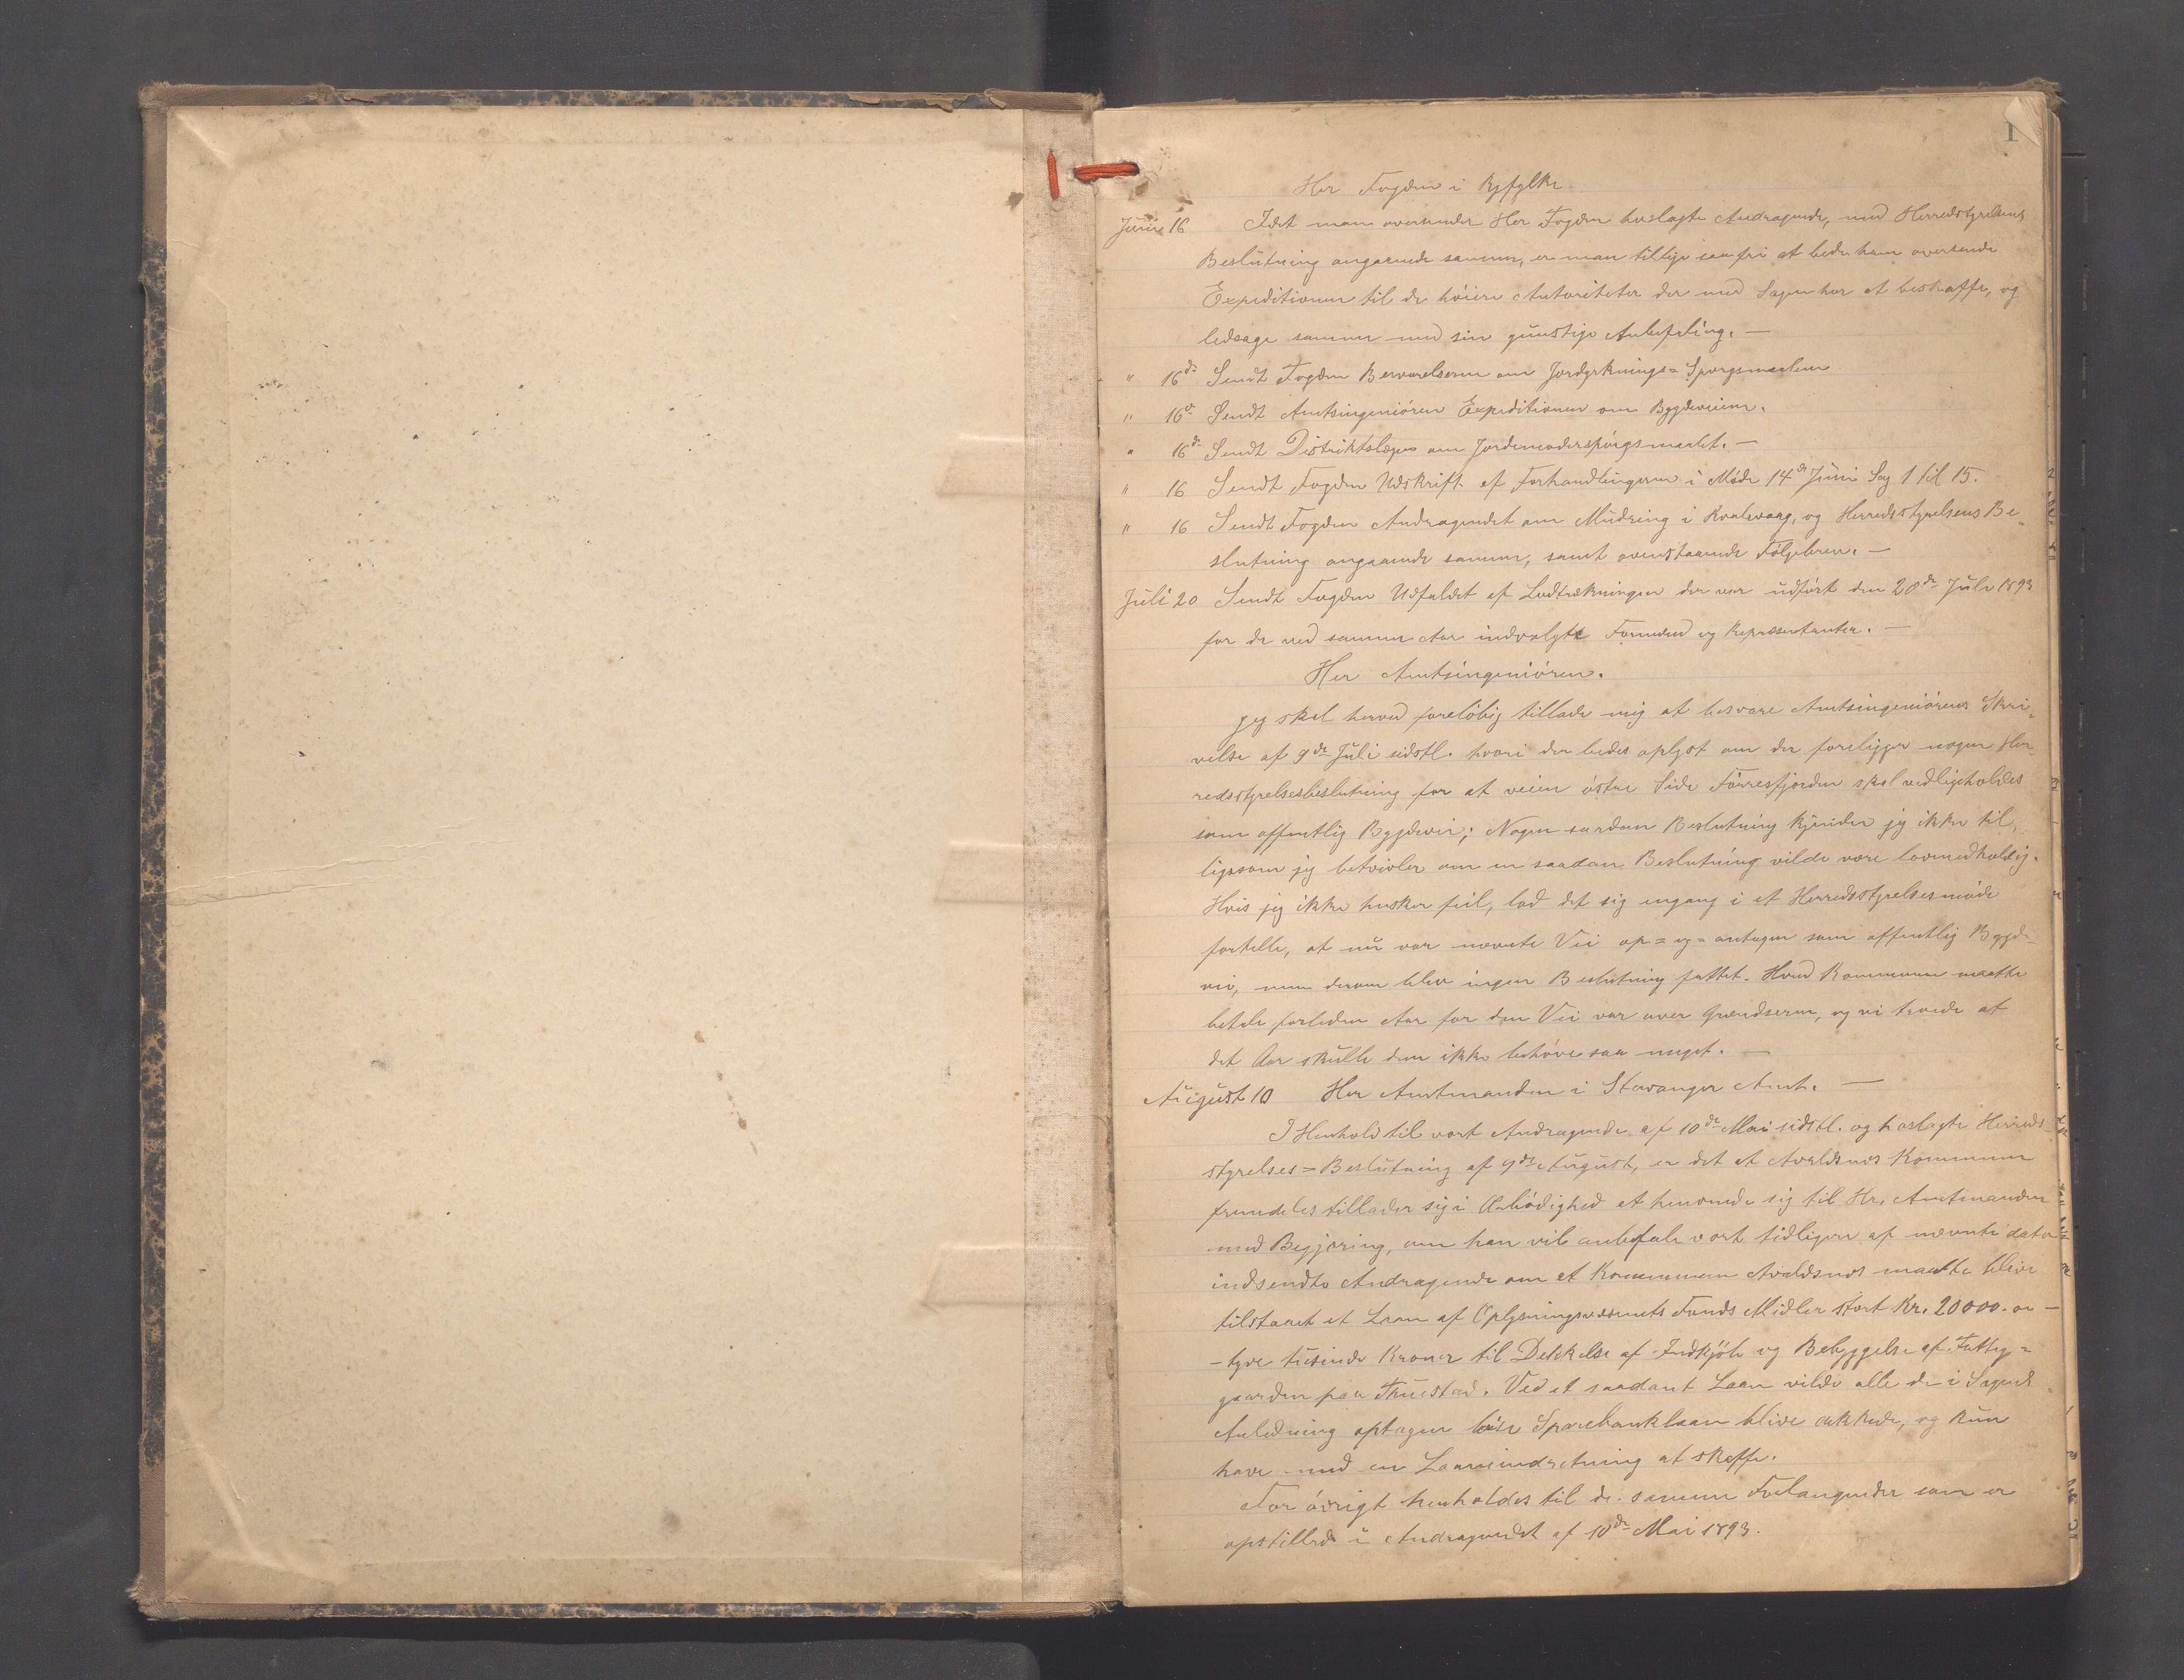 1
Her Fogden i Ryfylke
Juni 16 Idet man oversender Her Fogden hoslagte Andragende, med Herredstyrelsens
Beslutning angaaende samme, er man tillige saa fri at bede ham oversende
Expeditionen til de höiere Autoriteter der med Sagen har at beskaffe, og
ledsage samme med sin gunstige Anbefaling. —
" 16de Sendt Fogden Besvarelserne om Jordyrknings=Sporgsmaalene
" 16de Sendt Amtsingeniören Expeditionen om Bygdeveiene.
" 16de Sendt Distriktslægen om Jordemoderspörgsmaalet. —
" 16 Sendt Fogden Udskrift af Forhandlingerne i Möde 14de Juni Sag 1 til 15.
" 16 Sendt Fogden Andragendet om Mudring i Kvalevaag, og Herredsstyrelsens Be-
slutning angaaende samme, samt ovenstaaende Fölgebrev. —
Juli 20 Sendt Fogden Udfaldet af Lodtrækningen der var udfört den 20de Juli 1893
for de ved samme Aar indvalgte Formænd og Repræsentanter. —
Her Amtsingeniören.
Jeg skal herved forelöbig tillade mig at besvare Amtsingeniörens Skri-
velse af 9de Juli sidstl. hvori der bedes oplyst om der foreligger nogen Her-
redsstyrelsesbeslutning for at veien östre Side Förresfjorden skal vedligeholdes
som offentlig Bygdevei; Nogen saadan Beslutning kjender jeg ikke til,
ligesom jeg betvivler om en saadan Beslutning vilde være lovmedholdig.
Hvis jeg ikke husker feil, lod det sig engang i et Herredsstyrelsesmöde
fortelle, at nu var nævnte Vei op=og=antagen som offentlig Bygde-
vei, men derom blev ingen Beslutning fattet. Hvad Kommunen maatte
betale forleden Aar for den Vei var over Grændserne, og vi troede at
det Aar skulle den ikke behöve saa meget. —
August 10 Her Amtmanden i Stavanger Amt. —
I Henhold til vort Andragende af 10de Mai sidstl. og hoslagte Herreds-
styrelses=Beslutning af 9de August, er det at Avaldsnes Kommune
fremdeles tillader sig i Ærbödighed at henvende sig til Hr. Amtmanden
med Begjæring, om han vil anbefale vort tidligere af nævnte dato
indsendte Andragende om at Kommunen Avaldsnes maatte blive
tilstaaet et Laan af Oplysningsvæsenets Fonds Midler stort Kr. 20000.00 —
– tyve tusinde Kroner til Dekkelse af Indkjöb og Bebyggelse af Fattig=
gaarden paa Truestad. Ved et saadant Laan vilde alle de i Sagens
Anledning optagne löse Sparebanklaan blive dekkede, og kun
have med en Laaneindretning at skaffe.
For övrigt henholdes til de samme Forlangender som er
opstillede i Andragendet af 10de Mai 1893.